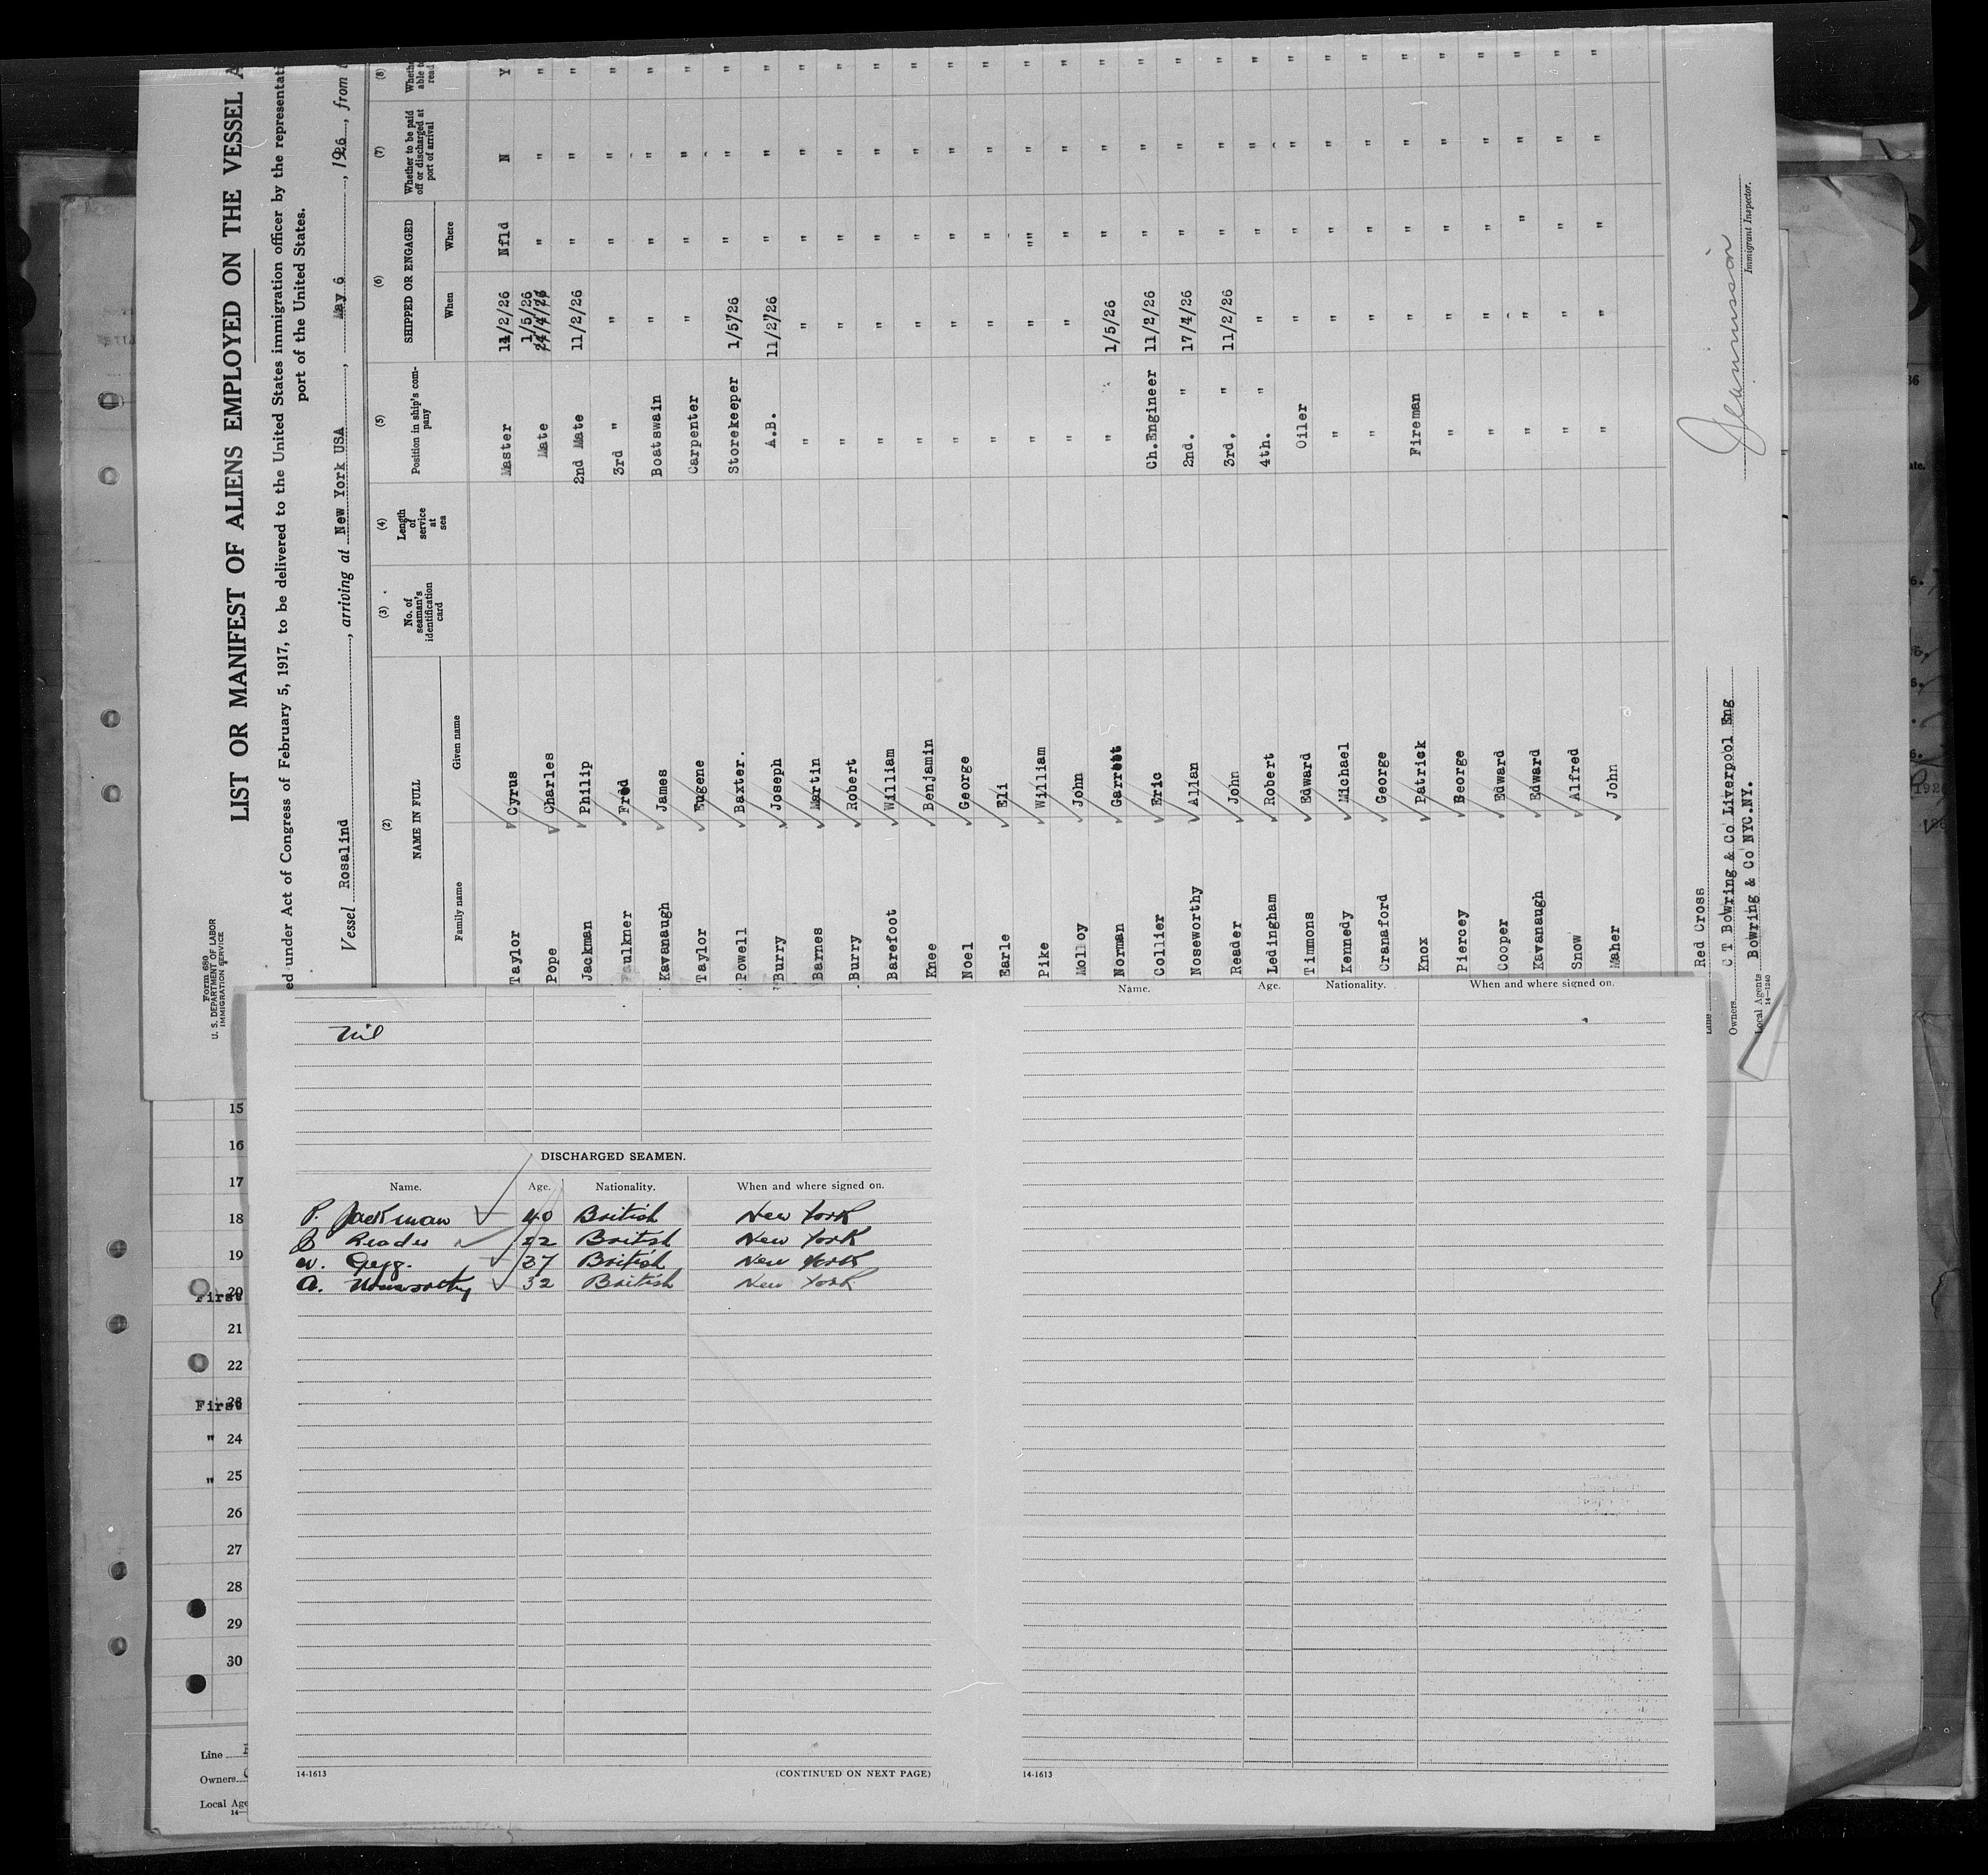 Form 680
U. S. DEPARTMENT OF LABOR
IMMIGRATION SERVICE
LIST OR MANIFEST OF ALIENS EMPLOYED ON THE VESSEL A
ed under Act of Congress of February 5, 1917, to be delivered to the United States immigration officer by the representati
port of the United States.
Vessel Rosalind, arriving at New York USA, May 6, 1926, from
(2) (3) (4) (5) (6) (7) (8)
NAME IN FULL No. of seaman's identification card Length of service at sea Position in ship's company SHIPPED OR ENGAGED Whether to be paid off or discharged at port of arrival Wheth able t read
Family name Given name When Where
Taylor Cyrus Master 11/2/26 Nfld N Y
Pope Charles Mate 1/5/26 24/4/26 " " "
Jackman Philip 2nd Mate 11/2/26 " " "
Faulkner Fred 3rd " " " " "
Kavanaugh James Boatswain " " " "
Taylor Eugene Carpenter " " " "
Powell Baxter. Storekeeper 1/5/26 " " "
Burry Joseph A.B. 11/2/26 " " "
Barnes Martin " " " " "
Burry Robert " " " " "
Barefoot William " " " " "
Knee Benjamin " " " " "
Noel George " " " " "
Earle Eli " " " " "
Pike William " " "" " "
Molloy John " " " " "
Norman Garrett " 1/5/26 " " "
Collier Eric Ch.Engineer 11/2/26 " " "
Noseworthy Allan 2nd. " 17/4/26 " " "
Reader John 3rd. " 11/2/26 " " "
Ledingham Robert 4th. " " " " "
Timmons Edward Oiler " " " "
Kennedy Michael " " " " "
Cranaford George " " " " "
Knox Patrick Fireman " " " "
Piercey George " " " " "
Cooper Edward " " " " "
Kavanaugh Edward " " " " "
Snow Alfred " " " " "
Maher John " " " " "
Line Red Cross
Owners C T Bowring & Co Liverpool Eng
Local Agents Bowring & Co NYC.NY.
14-1240
Immigrant Inspector.
Nil
DISCHARGED SEAMEN.
Name. Age. Nationality. When and where signed on.
P. Jackman 40 British New York
J Reader 22 British New York
W. Gegg. 37 British New York
A. Noseworthy 32 British New York
14-1613 (CONTINUED ON NEXT PAGE)
Name. Age. Nationality. When and where signed on.
14-1613
15
16
17
18
19
First 20
21
22
First 23
" 24
" 25
26
27
28
29
30
Line
Owners
Local Age
14-